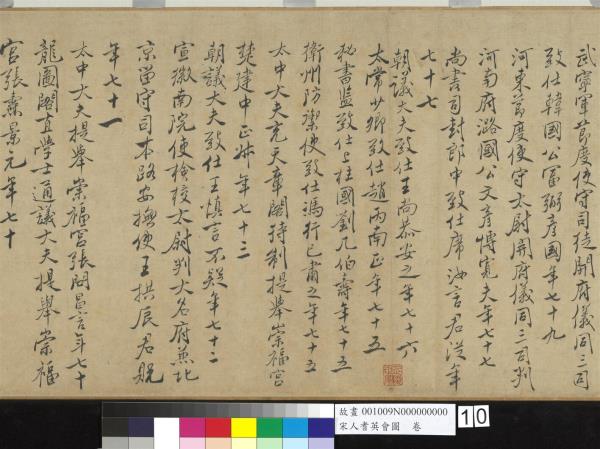 武寧軍節度使守司徒開府儀同三司
致仕韓國公富弼彥國年七十九
河東節度使守太尉開府儀同三司判
河南府潞國公文彥博寬夫年七十七
尚書司封郎中致仕席汝言君從年
七十七
朝議大夫致仕王尚恭安之年七十六
太常少卿致仕趙丙南正年七十五
秘書監致仕上柱國劉几伯壽年七十五
衛州防禦使致仕馮行己肅之年七十五
太中大夫充天章閣待制提舉崇福宮
楚建中正叔年七十三
朝議大夫致仕王慎言不疑年七十二
宣徽南院使檢校太尉判大名府兼北
京留守司本路安撫使王拱辰君貺
年七十一
太中大夫提舉崇福宮張問昌言年七十
龍圖閣直學士通議大夫提舉崇福
宮張燾景元年七十
故畫 001009N000000000
宋人耆英會圖 卷
10